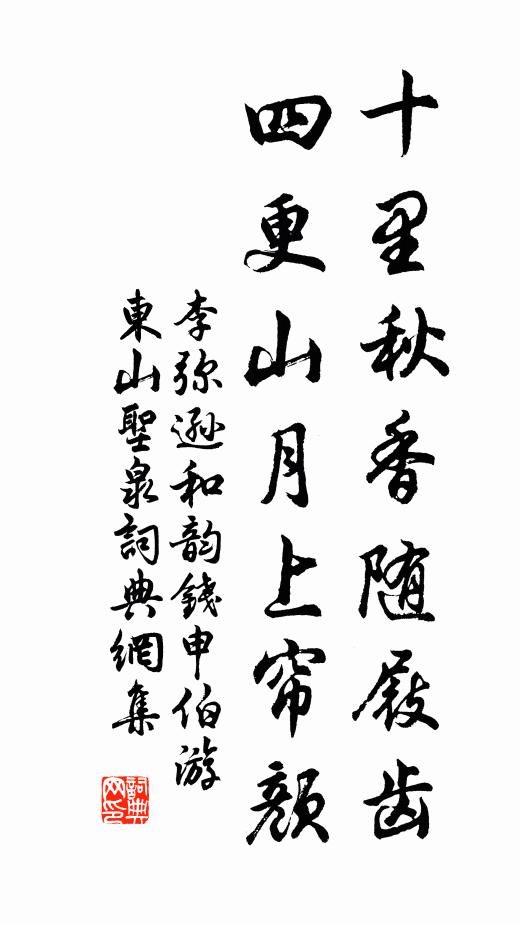 十里秋香随屐齿
四更山月上帘颜
李弥逊和韵錢申伯游
東山聖泉詞典網集
詞典网印